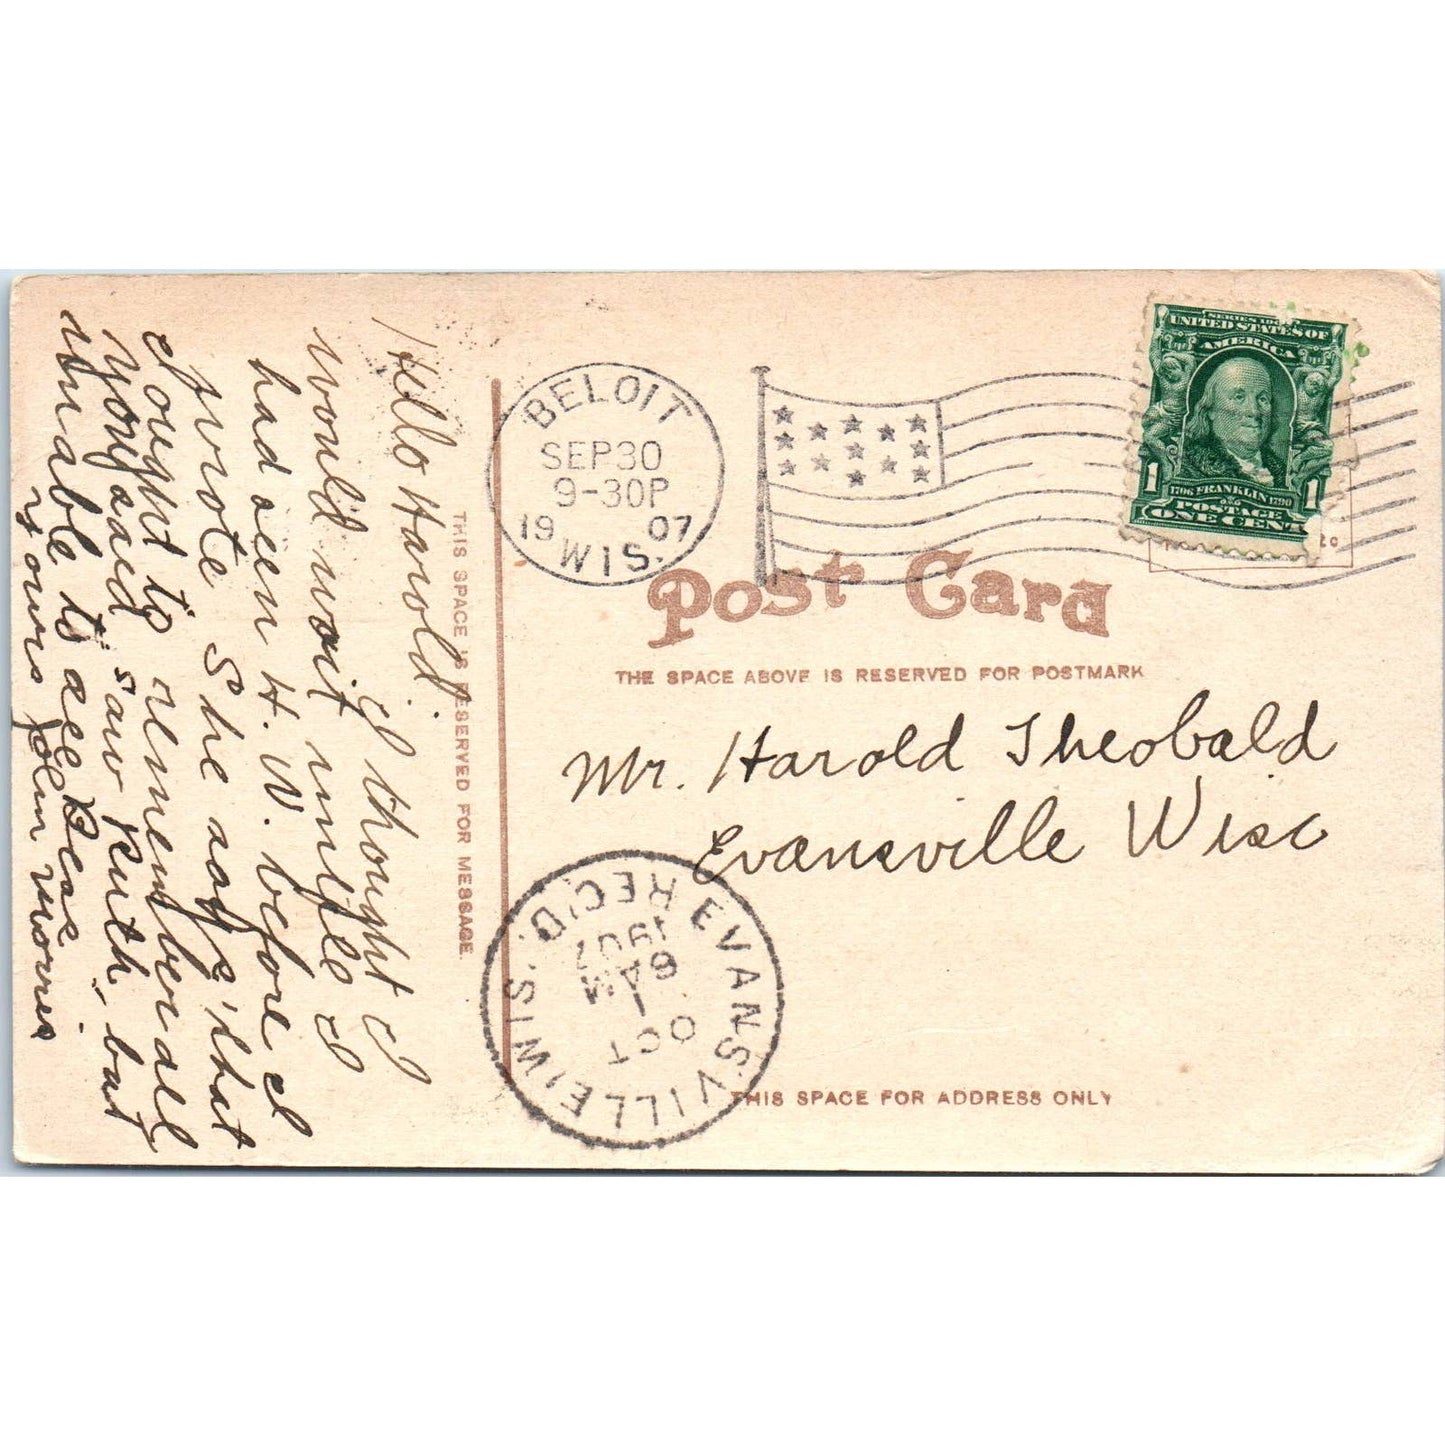 Hello Harold.
I thought I
would wait untill I
had seen H. W. before I
wrote She says, that
I ought to remember all
you said "saw Ruth", but
unable to see Bess
Yours John Morris
THIS SPACE IS RESERVED FOR MESSAGE
BELOIT
SEP 30
9-30P
19 07
WIS.
UNITED STATES OF
AMERICA
1706 FRANKLIN 1790
POSTAGE
1 ONE CENT 1
Post Card
THE SPACE ABOVE IS RESERVED FOR POSTMARK
Mr. Harold Theobald
Evansville Wisc
EVANSVILLE, WIS. REC'D.
OCT
1
6 AM
1907
THIS SPACE FOR ADDRESS ONLY